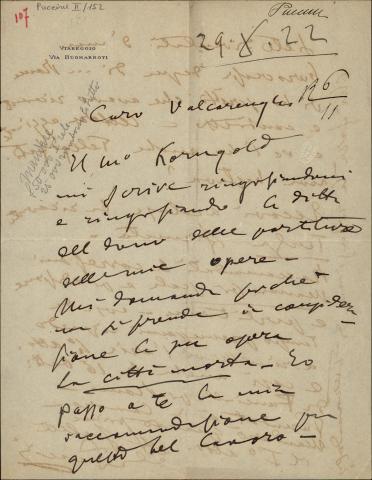 107
Puccini II/152
Puccini
VIAREGGIO
VIA BUONARROTI
29 X 22
Caro Valcarenghi
R 6/11
Il Mo Korngold
mi scrive ringraziandomi
e ringraziando la ditta
del dono delle partiture
delle mie opere -
Mi domanda perchè
non si prenda in conside=
razione la sua opera
La città morta - Io
passo a te la mia
raccomandazione per
questo bel lavoro -